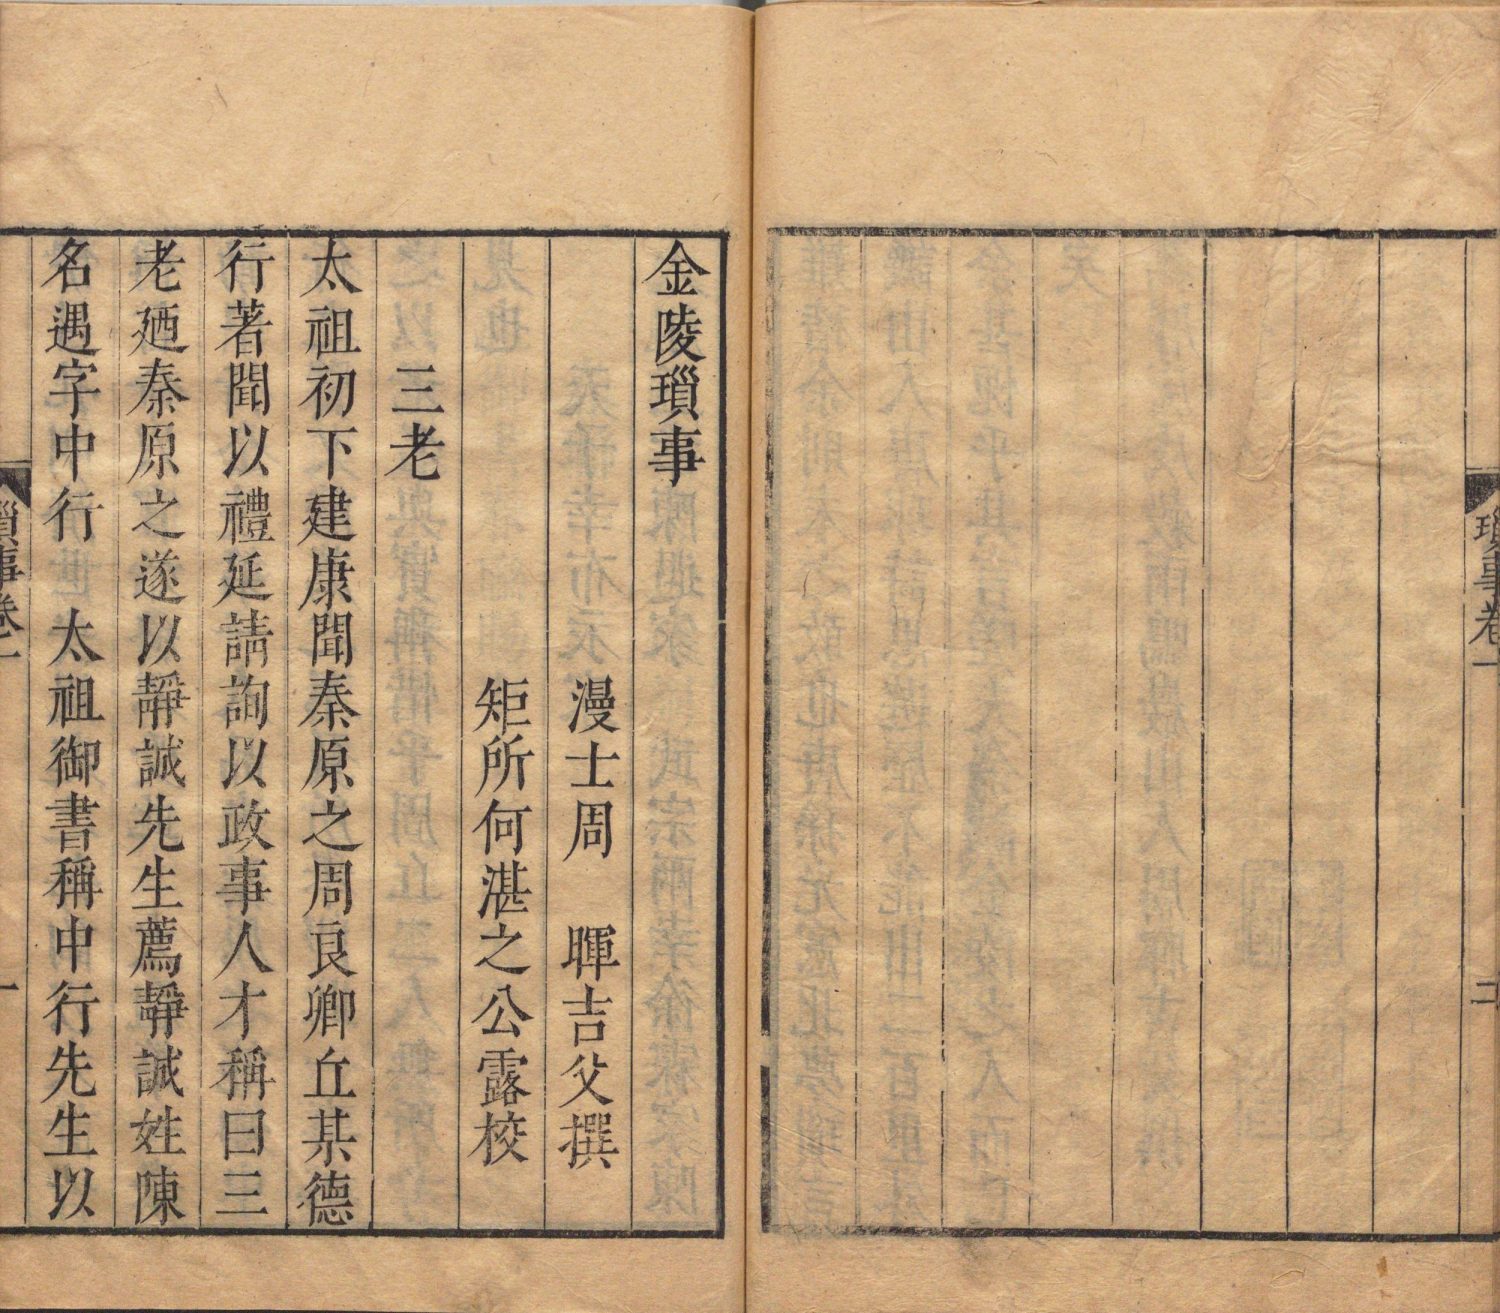 瑣事卷一
二
金陵瑣事
漫士周 暉吉父撰
矩所何湛之公露校
三老
太祖初下建康聞秦原之周良卿丘某德
行著聞以禮延請詢以政事人才稱曰三
老廼秦原之遂以靜誠先生薦靜誠姓陳
名遇字中行 太祖御書稱中行先生以
瑣事卷一
一